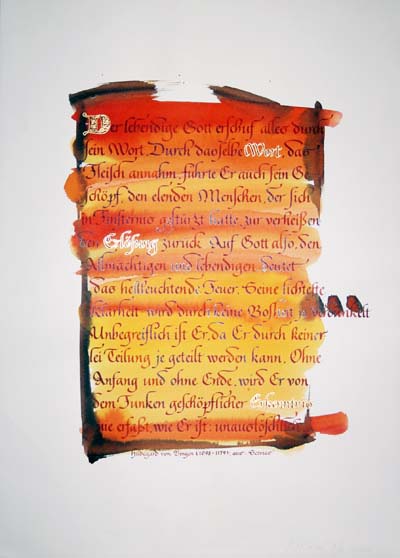 Der lebendige Gott erschuf alles durch
sein Wort. Durch dasselbe Wort, das
Fleisch annahm, führte Er auch sein Ge
schöpf, den elenden Menschen, der sich
in Finsternis gestürzt hatte, zur verheißen
nen Erlösung zurück. Auf Gott also, den
Allmächtigen und lebendigen deutet
das hellleuchtende Feuer. Seine lichteste
Klarheit wird durch keine Bosheit je verdunkelt
Unbegreiflich ist Er, da Er durch keiner
lei Teilung je geteilt werden kann. Ohne
Anfang und ohne Ende, wird Er von
dem Funken geschöpflicher Erkenntnis
nie erfaßt, wie Er ist: unauslöschlich
Hildegard von Bingen (1098-1179) aus "Scivias"